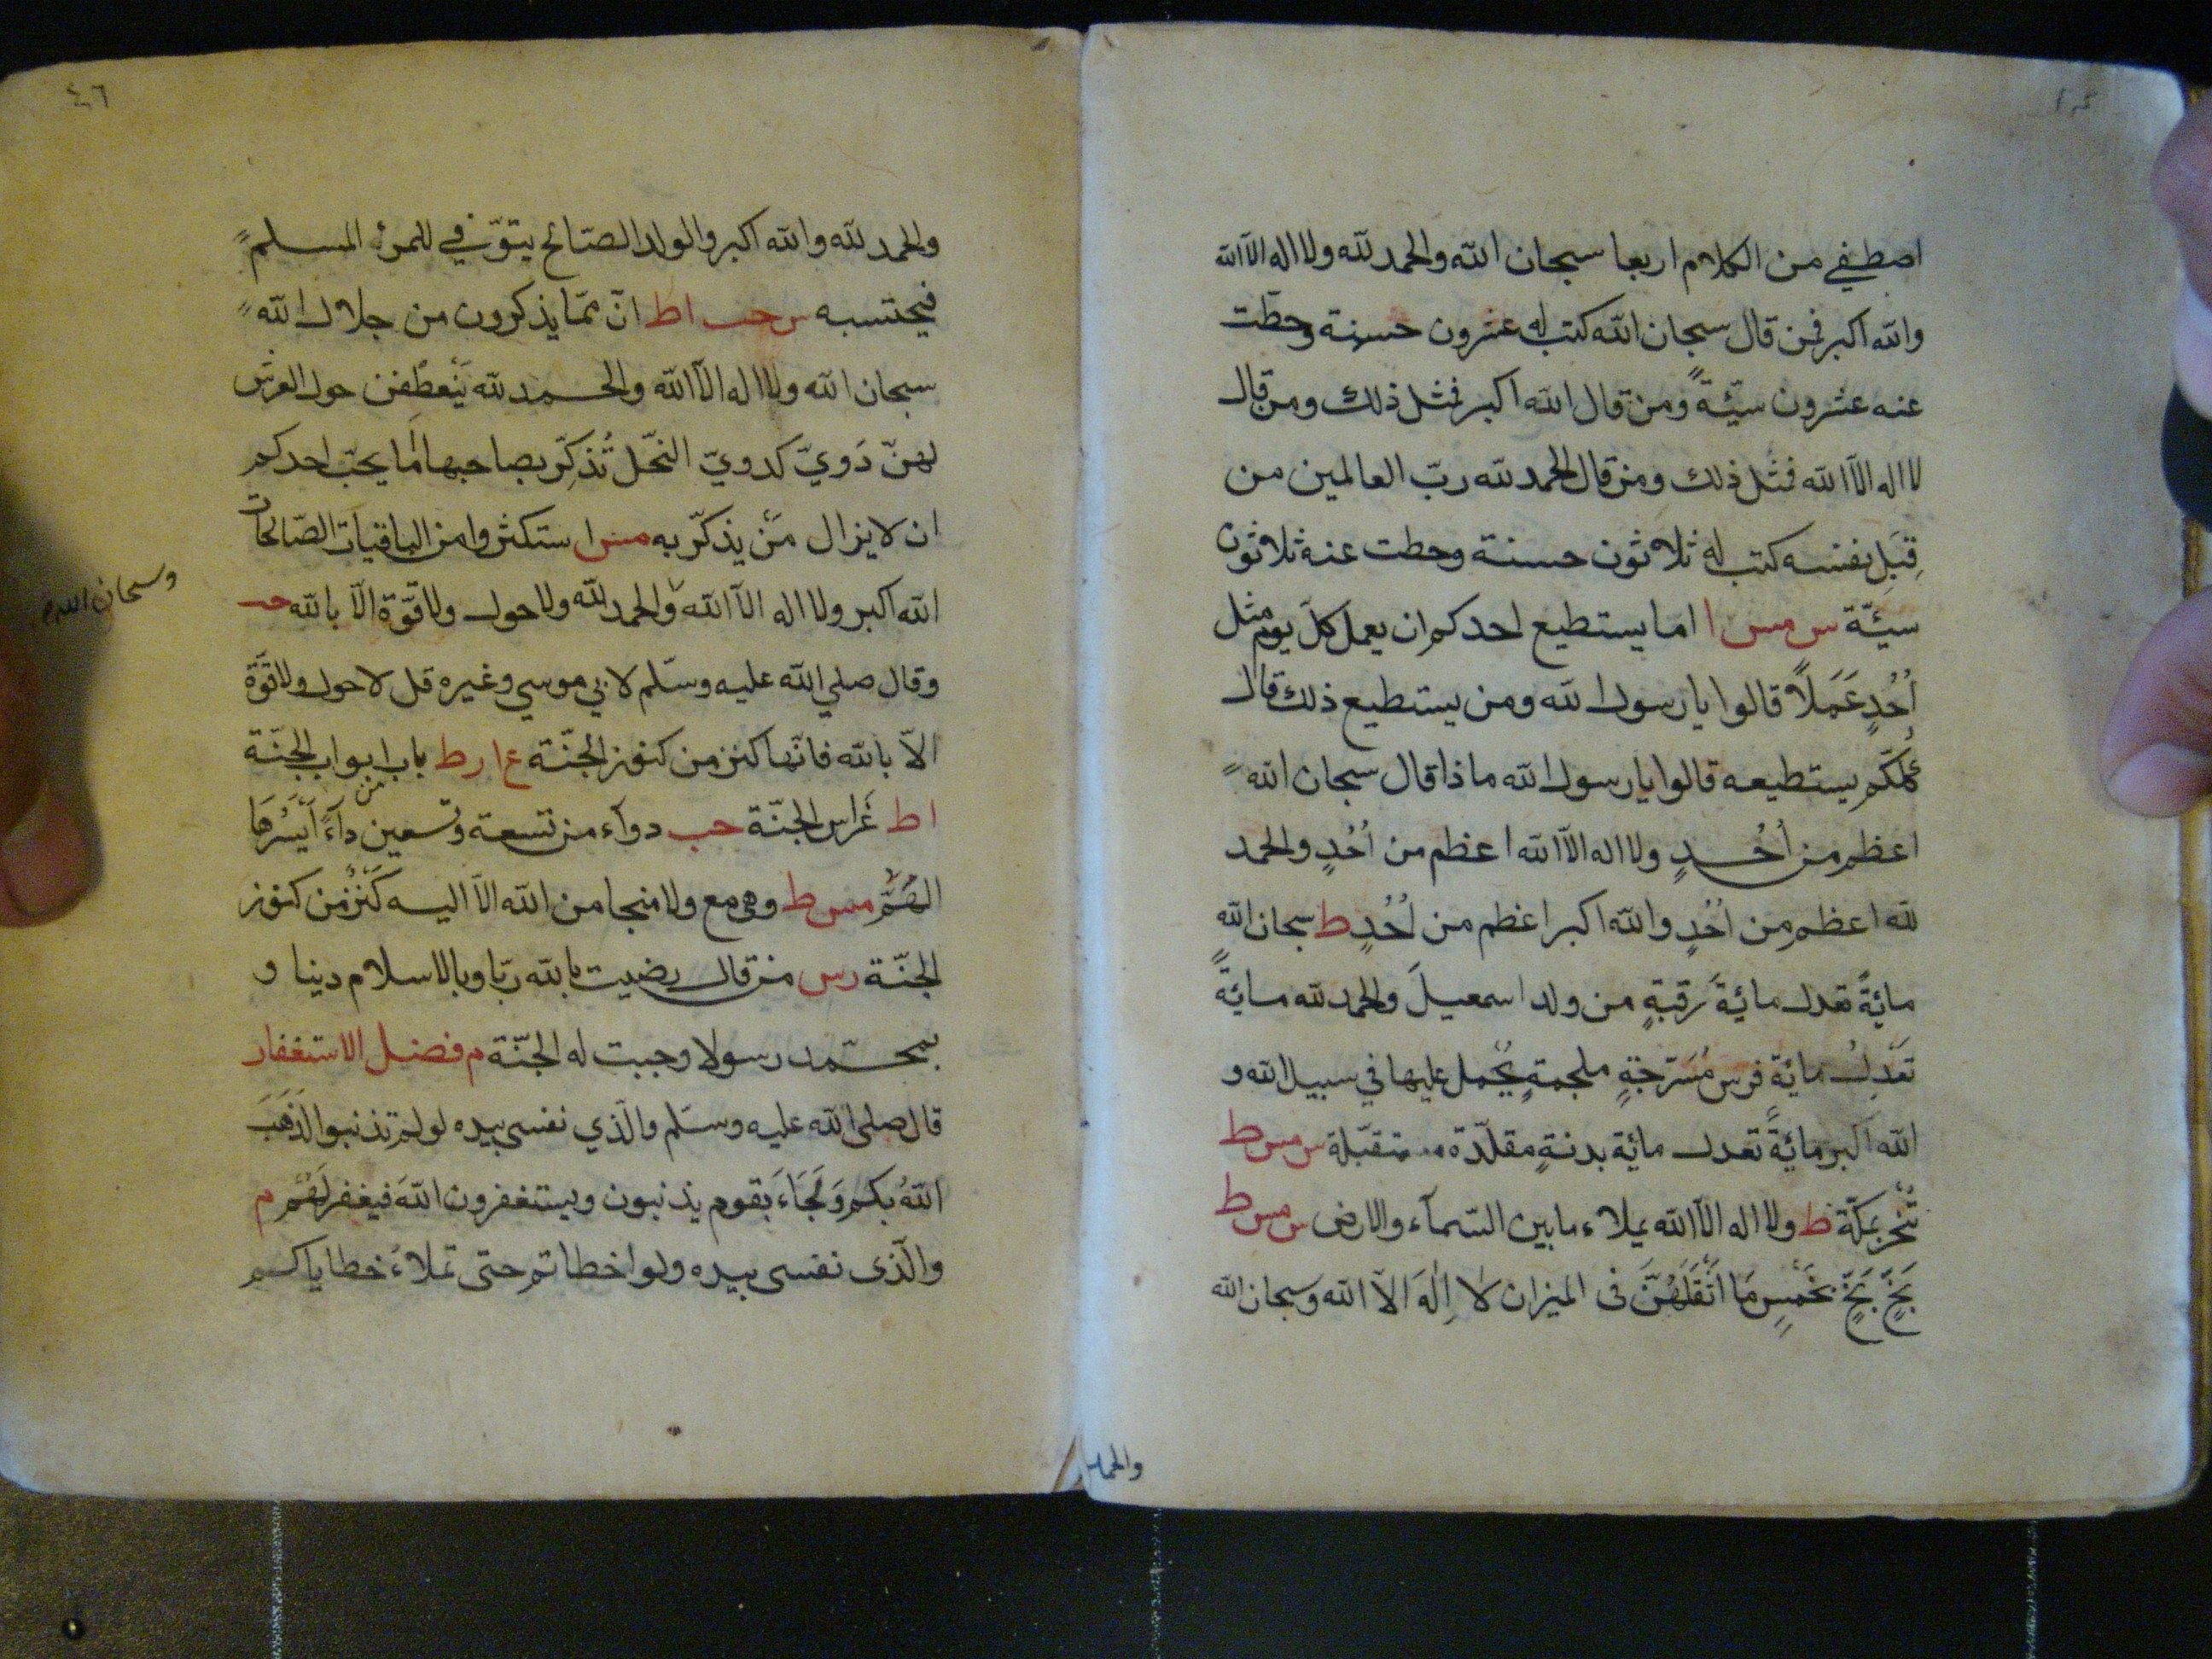 اصطفي من الكلام اربعا سبحان الله والحمد لله ولا اله الا الله
والله اكبر فمن قال سبحان الله كتب له عشرون حسنة وحطت
عنه عشرون سيّئةً ومن قال الله اكبر فمثل ذلك ومن قال
لا اله الا الله فمثل ذلك ومن قال الحمد لله ربّ العالمين من
قِبَلِ نفسه كتب له ثلاثون حسنة وحطت عنه ثلاثون
سيئّة س مس ا اما يستطيع احدكم ان يعمل كلّ يوم مثل
اُحُدٍ عَمَلاً قالوا يا رسول الله ومن يستطيع ذلك قال
كُلّكم يستطيعه قالوا يا رسول الله ما ذا قال سبحان الله
اعظم من اُحُدٍ ولا اله الا الله اعظم من اُحُدٍ والحمد
لله اعظم من اُحُدٍ والله اكبر اعظم من اُحُدٍ ط سبحان الله
مائةً تعدل مائةَ رقبةٍ من ولد اسمعيلَ والحمد لله مائةً
تَعْدِلُ مائة فرس مُسَرّجةٍ ملجمةٍ يُحْمل عليها في سبيل الله و
الله اكبر مائةً تعدل مائة بدنةٍ مقلّدة متقبّلة س مس ط
تُنْحَر بمكّة ط ولا اله الا الله يملاء ما بين السّمآء والارض س مس ط
بَخٍّ بَخٍّ بخَمْسٍ مَا اَثْقَلَهُنَّ فى الميزان لا اِلٰهَ الا الله وسبحان الله
والحمد
٤٦
والحمد لله والله اكبر والولد الصّالح يتوّفي للمرء المسلم
فيحتسبه س حب ا ط انّ ممّا يذكرون من جلال الله
سبحان الله ولا اله الا الله والحمد لله يَنْعطِفن حول العرش
لهنّ دَويّ كدويّ النّحل تُذكِّر بصاحبها اَمَا يحبّ احدكم
ان لا يزال مَنْ يذكّر به مس استكثروا من الباقيات الصّالحات
الله اكبر ولا اله الا الله والحمد لله ولا حول ولا قوّة الّا بالله حب
وسبحان الله
وقال صلي الله عليه وسّلم لابي موسي وغيره قل لا حول ولا قوّة
الّا بالله فانّها كنز من كنوز الجنّة ع ا ر ط باب من ابواب الجنّة
ا ط غَراس الجنّة حب دوآء من تسعة وتسعين دآءً اَيْسَرُهَا
الهَمُّ مس ط وهى مع ولا منجا من الله الّا اليه كَنْزٌ من كنوز
الجنّة ر س من قال رضيت بالله ربّا وبالاسلام دينا و
بمحمّد رسولا وجبت له الجنّة م فضل الاستغفار
قال صلى الله عليه وسّلم والّذي نفسى بيده لو لم تذنبوا لَذَهَبَ
اللهُ بكم وَلَجَاءَ بقوم يذنبون ويستغفرون اللهَ فيغفر لَهُم م
والّذى نفسى بيده ولو اخطاتم حتى تملاءَ خطاياكم